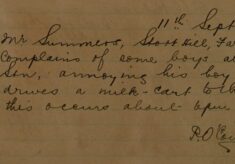 11th Sept
Mr Summers, Stott Hill, Far
Complains of some boys a
Son, annoying his boy
drives a milk-cart to
this occurs about 4pm